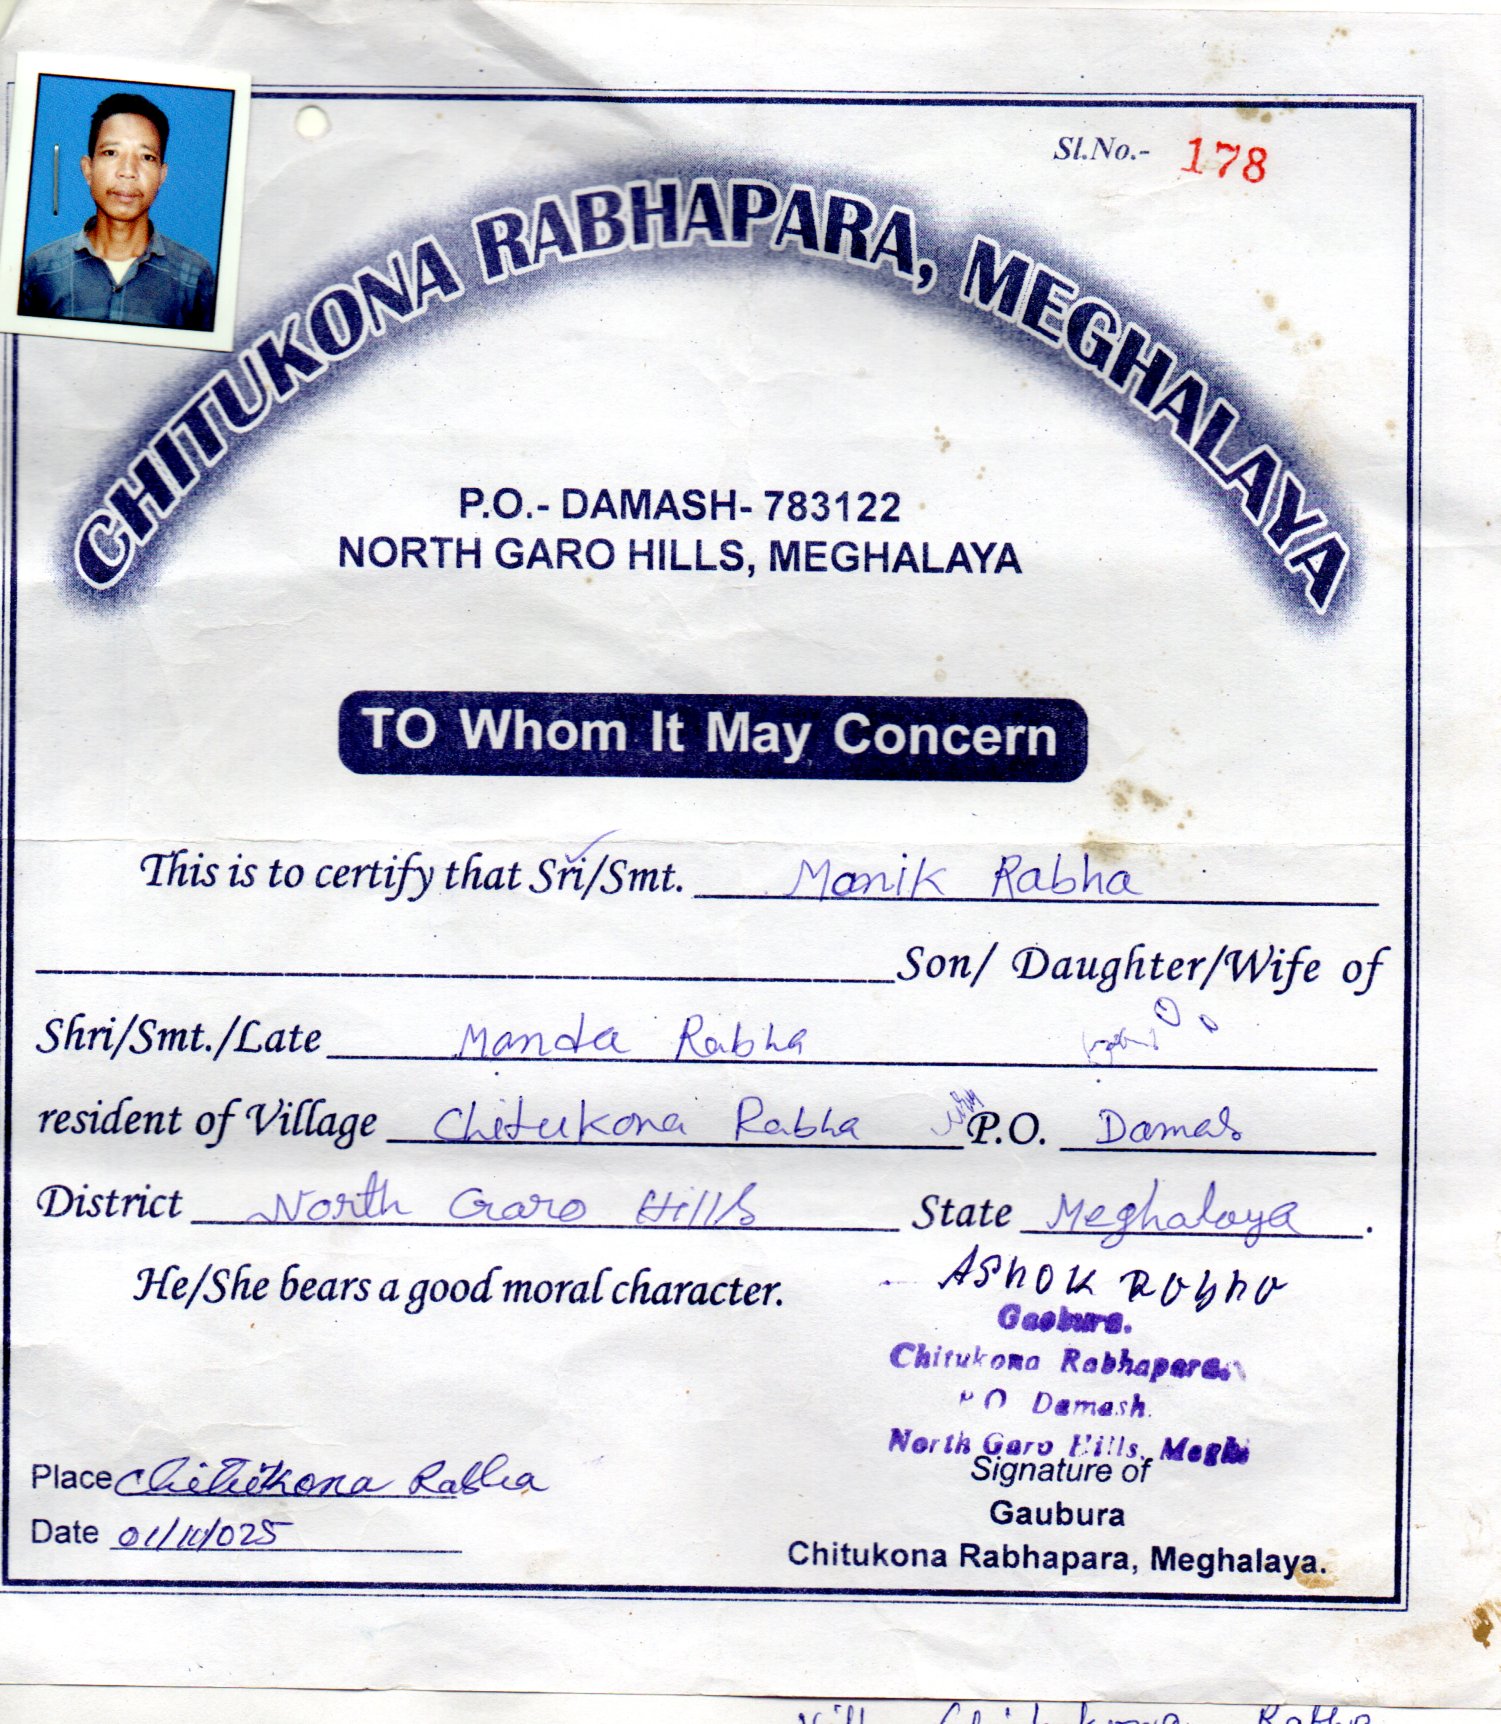 Sl.No.- 178
CHITUKONA RABHAPARA, MEGHALAYA
P.O.- DAMASH- 783122
NORTH GARO HILLS, MEGHALAYA
TO Whom It May Concern
This is to certify that Sri/Smt. Manik Rabha
Son/ Daughter/Wife of
Shri/Smt./Late Manda Rabha
resident of Village Chitukona Rabha P.O. Damas
District North Garo Hills State Meghalaya.
He/She bears a good moral character.
ASHOK RABHA
Gaobura.
Chitukona Rabhapara.
P O Damash.
North Garo Hills, Megh
Signature of
Place Chitukona Rabha
Gaubura
Date 01/10/025
Chitukona Rabhapara, Meghalaya.
Vill Chitukona Rabha